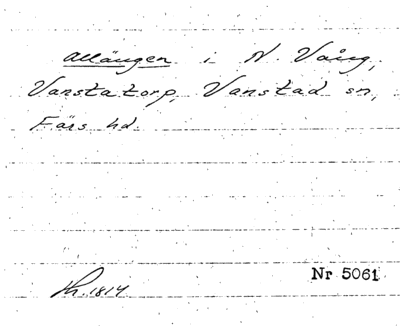 Allängen i N. Vång,
Vanstatorp, Vanstad sn,
Färs hd.
Nr 5061
1814